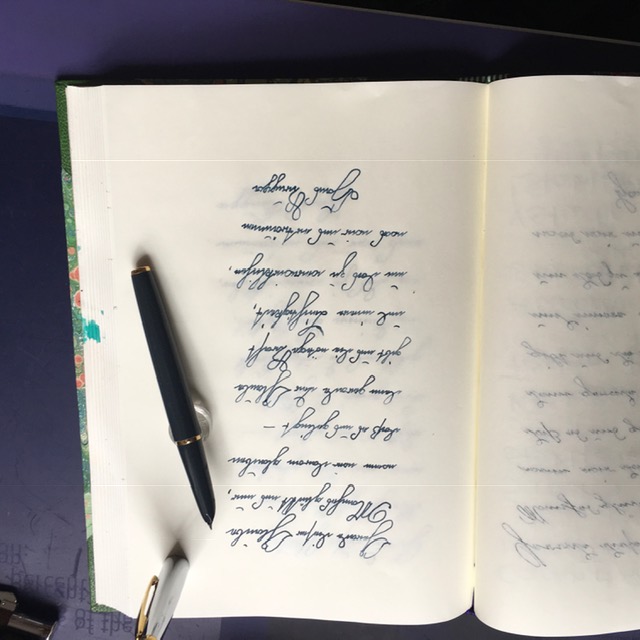 Gerade dieser Glaube
Manches glückt uns nur,
wenn wir daran glauben
daß es uns gelingt —
denn gerade der Glaube
gibt uns die nötige Kraft
und innere Leichtigkeit,
um das zu verwirklichen,
was wir uns erträumen
Hans Kruppa